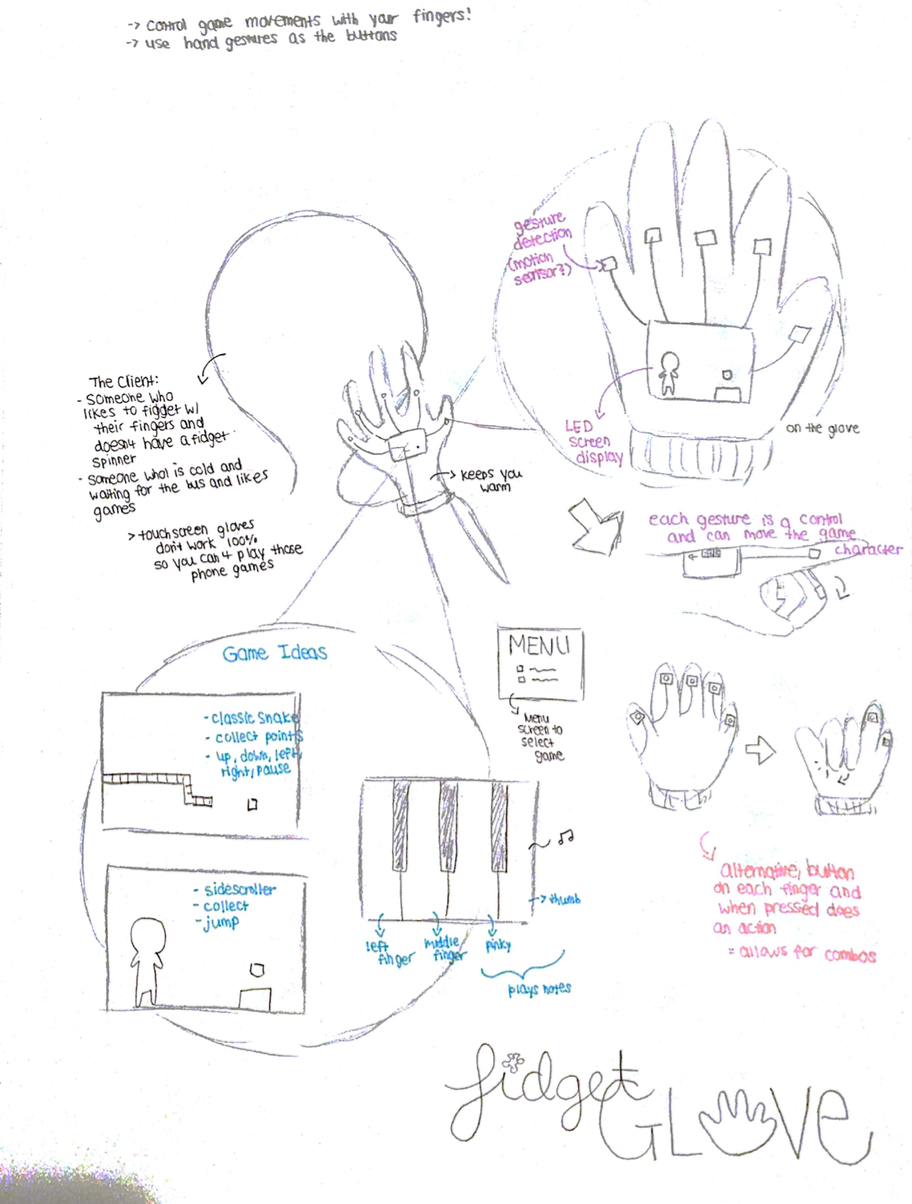 -> Control game movements with your fingers!
-> use hand gestures as the buttons
gesture
detection
(motion
sensor?)
LED
screen
display
on the glove
The Client:
- Someone who
likes to figget w/
their fingers and
doesnt have a fidget
spinner
- someone whol is cold and
waiting for the bus and likes
games
> touchscreen gloves
dont work 100%
so you can't play those
phone games
-> keeps you
warm
each gesture is a control
and can move the game
character
Game Ideas
- classic snake
- collect points
- up, down, left,
right, pause
- sidescroller
- collect
- jump
MENU
Menu
screen to
select
game
-> thumb
left
finger
middle
finger
pinky
plays notes
alternative, button
on each finger and
when pressed does
an action
= allows for combos
fidget
GLOVE